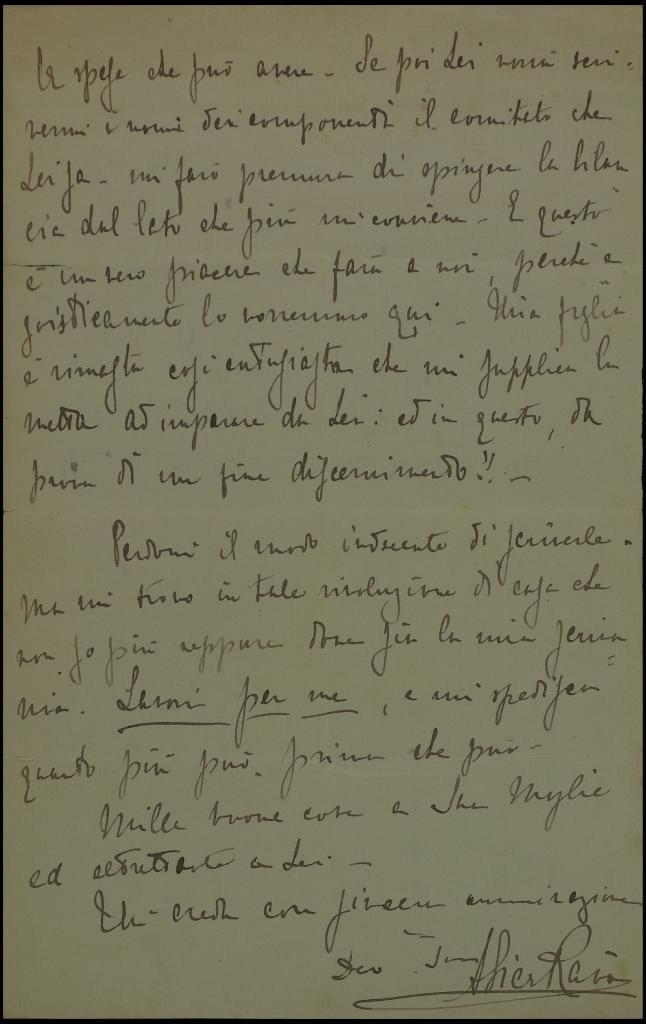 le spese che può avere - Se poi Lei vorrà scri-
vermi i nomi dei componenti il comitato che
Lei sa - mi farò premura di spingere la bilan
cia dal lato che più mi conviene - E questo
è un vero piacere che farà a noi, perchè e
goisticamente lo vorremmo qui - Mia figlia
è rimasta così entusiasta che mi supplica la
metta ad imparare da Lei: ed in questo, dà
prova di un fine discernimento!! -
Perdoni il modo indecente di scriverle -
Ma mi trovo in tale rivoluzione di casa che
non so più neppure dove sia la mia scriva
nia. Lavori per me, e mi spedisca
quanto più può, prima che può -
Mille buone cose a Sua Moglie
ed altrettante a Lei -
Mi creda con sincera ammirazione
Dev